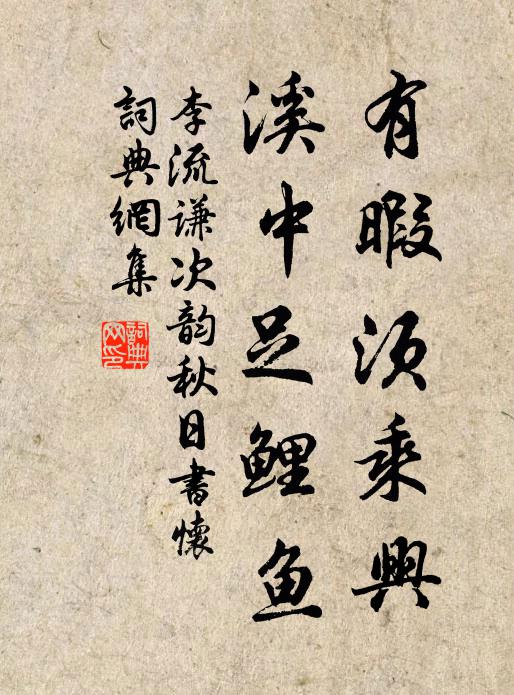 有暇須乘興
溪中足鯉魚
李流謙次韵秋日書懷
詞典網集
詞典網印